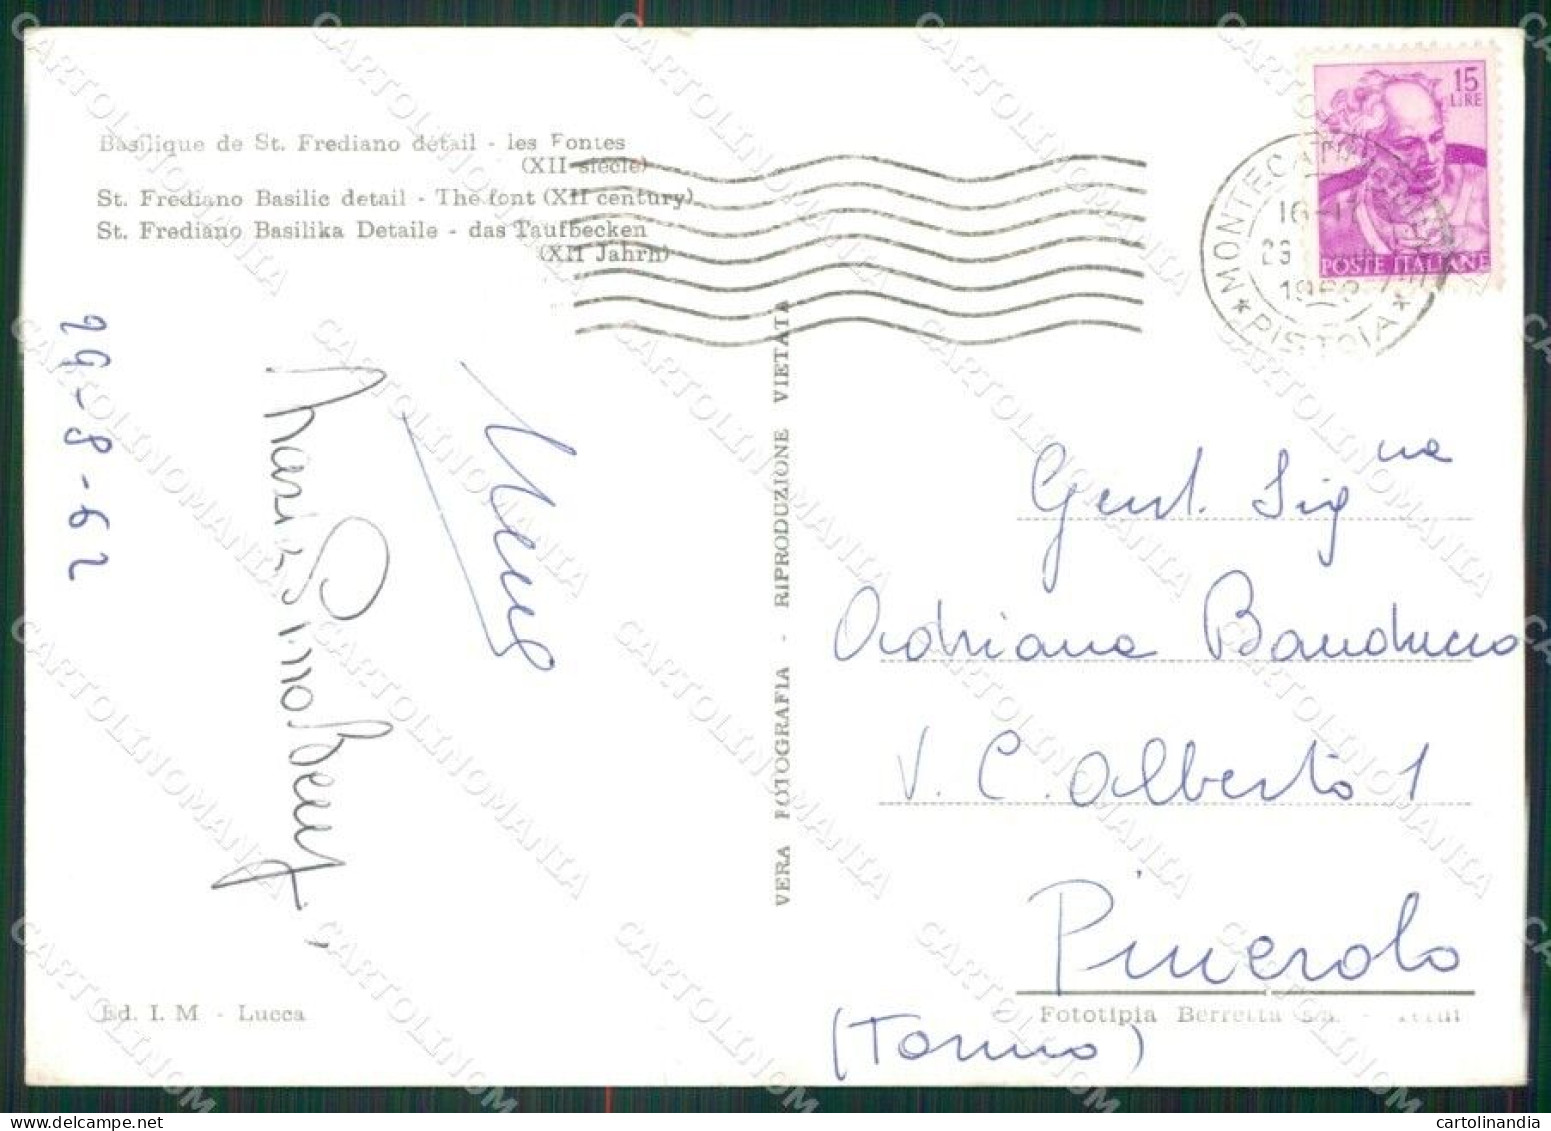 Basilique de St. Frediano détail - les Fontes
(XII siècle)
St. Frediano Basilic detail - The font (XII century)
St. Frediano Basilika Detaile - das Taufbecken
(XII Jahrh)
15
LIRE
POSTE ITALIANE
MONTECATINI TERME
16-17
1962
* PISTOIA *
29-8-62
VERA FOTOGRAFIA - RIPRODUZIONE VIETATA
Gent. Sig.na
Adriana Banducco
V. C. Alberto 1
Pinerolo
(Torino)
Ed. I. M - Lucca
Fototipia Berretta
CARTOLINOMANIA
cartolinandia